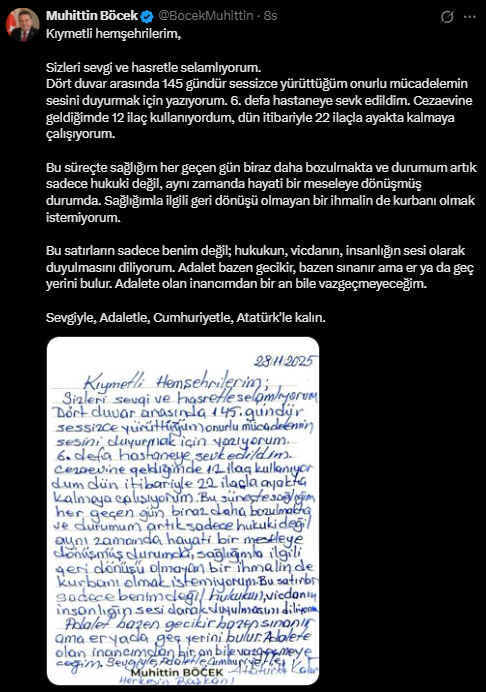 Muhittin Böcek @BocekMuhittin · 8s
Kıymetli hemşehrilerim,
Sizleri sevgi ve hasretle selamlıyorum.
Dört duvar arasında 145 gündür sessizce yürüttüğüm onurlu mücadelemin
sesini duyurmak için yazıyorum. 6. defa hastaneye sevk edildim. Cezaevine
geldiğimde 12 ilaç kullanıyordum, dün itibariyle 22 ilaçla ayakta kalmaya
çalışıyorum.
Bu süreçte sağlığım her geçen gün biraz daha bozulmakta ve durumum artık
sadece hukuki değil, aynı zamanda hayati bir meseleye dönüşmüş
durumda. Sağlığımla ilgili geri dönüşü olmayan bir ihmalin de kurbanı olmak
istemiyorum.
Bu satırların sadece benim değil; hukukun, vicdanın, insanlığın sesi olarak
duyulmasını diliyorum. Adalet bazen gecikir, bazen sınanır ama er ya da geç
yerini bulur. Adalete olan inancımdan bir an bile vazgeçmeyeceğim.
Sevgiyle, Adaletle, Cumhuriyetle, Atatürk'le kalın.
28.11.2025
Kıymetli Hemşehrilerim;
Sizleri sevgi ve hasretle selamlıyorum
Dört duvar arasında 145. gündür
sessizce yürüttüğüm onurlu mücadelemin
sesini duyurmak için yazıyorum.
6. defa hastaneye sevk edildim.
Cezaevine geldiğimde 12 ilaç kullanıyor
dum dün itibariyle 22 ilaçla ayakta
kalmaya çalışıyorum. Bu süreçte sağlığım
her geçen gün biraz daha bozulmakta
ve durumum artık sadece hukuki değil
aynı zamanda hayati bir meseleye
dönüşmüş durumda, sağlığımla ilgili
geri dönüşü olmayan bir ihmalin de
kurbanı olmak istemiyorum. Bu satırlar
sadece benim değil, hukukun, vicdanın
insanlığın sesi olarak duyulmasını diliyorum
Adalet bazen gecikir bazen sınanır
ama er ya da geç yerini bulur. Adalete
olan inancımdan bir an bile vazgeçmeye
ceğim. Sevgiyle, Adaletle, Cumhuriyetle,
Muhittin BÖCEK Atatürkle Kalın
Herkesin Başkanı